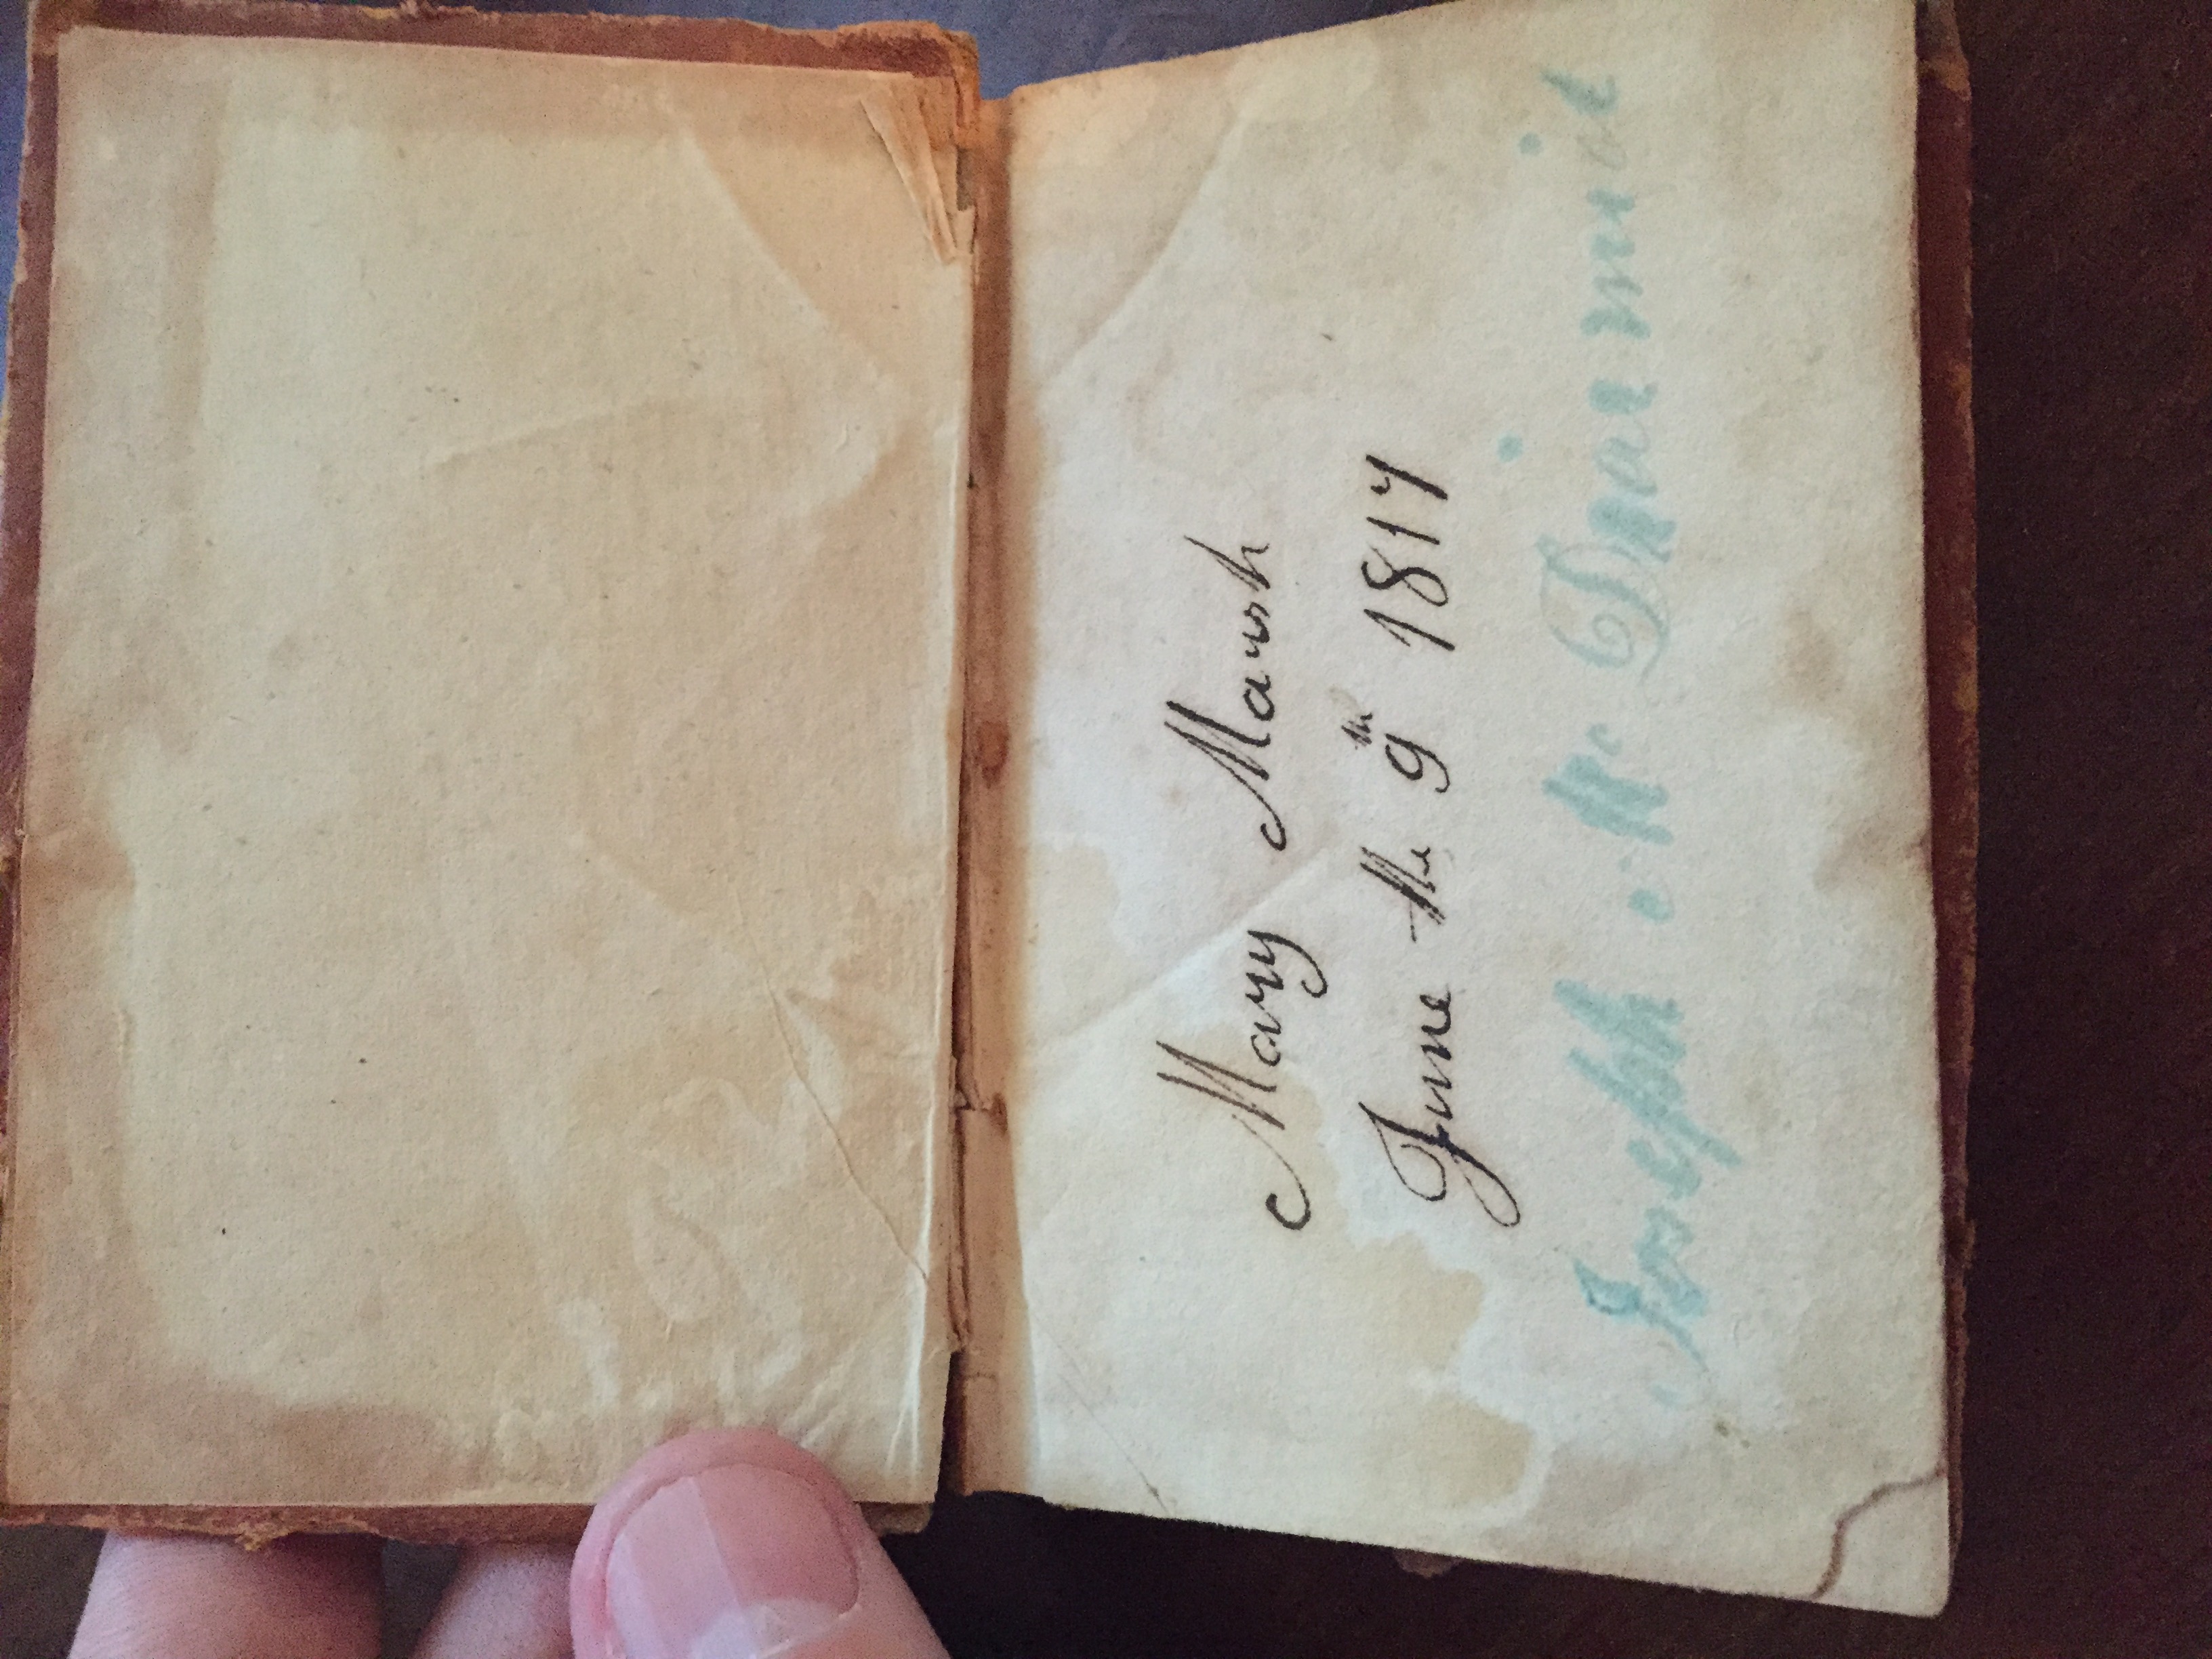 Mary Marsh
June the 9th 1817
Joseph Mc Diarmid